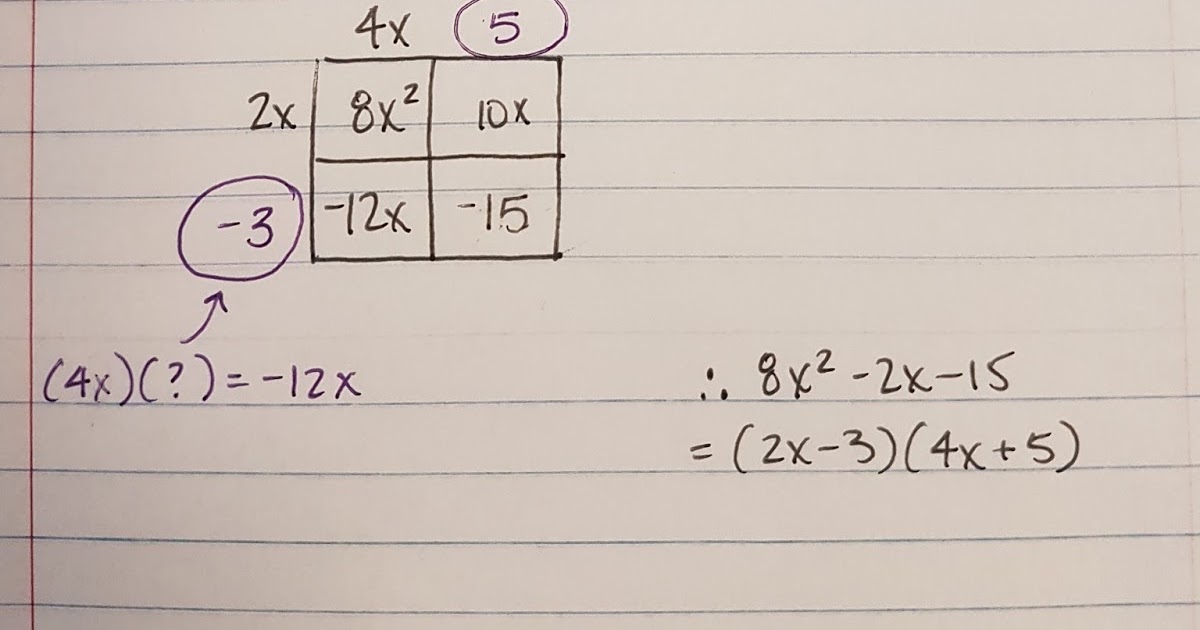 4x 5
2x 8x² 10x
-3 -12x -15
(4x)(?) = -12x
∴ 8x² -2x-15
= (2x-3)(4x+5)